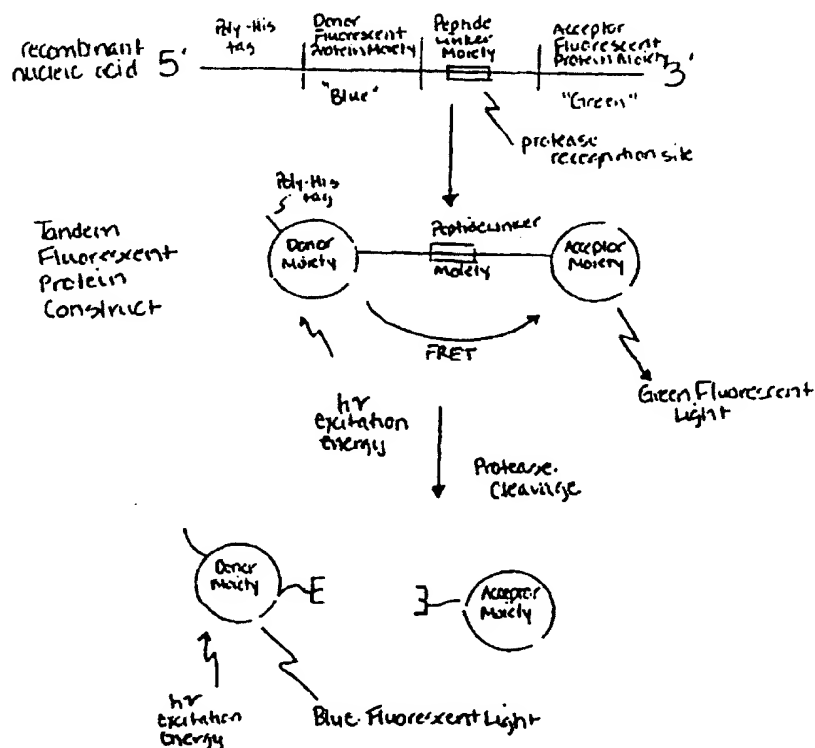 recombinant
nucleic acid
5'
Poly-His
tag
Donor
Fluorescent
Protein Moiety
Peptide
Linker
Moiety
Acceptor
Fluorescent
Protein Moiety
3'
"Blue"
"Green"
protease
recognition site
Tandem
Fluorescent
Protein
Construct
Poly-His
tag
Donor
Moiety
Peptide Linker
Moiety
Acceptor
Moiety
FRET
hν
excitation
energy
Green Fluorescent
Light
Protease
Cleavage
Donor
Moiety
Acceptor
Moiety
hν
excitation
Energy
Blue Fluorescent Light